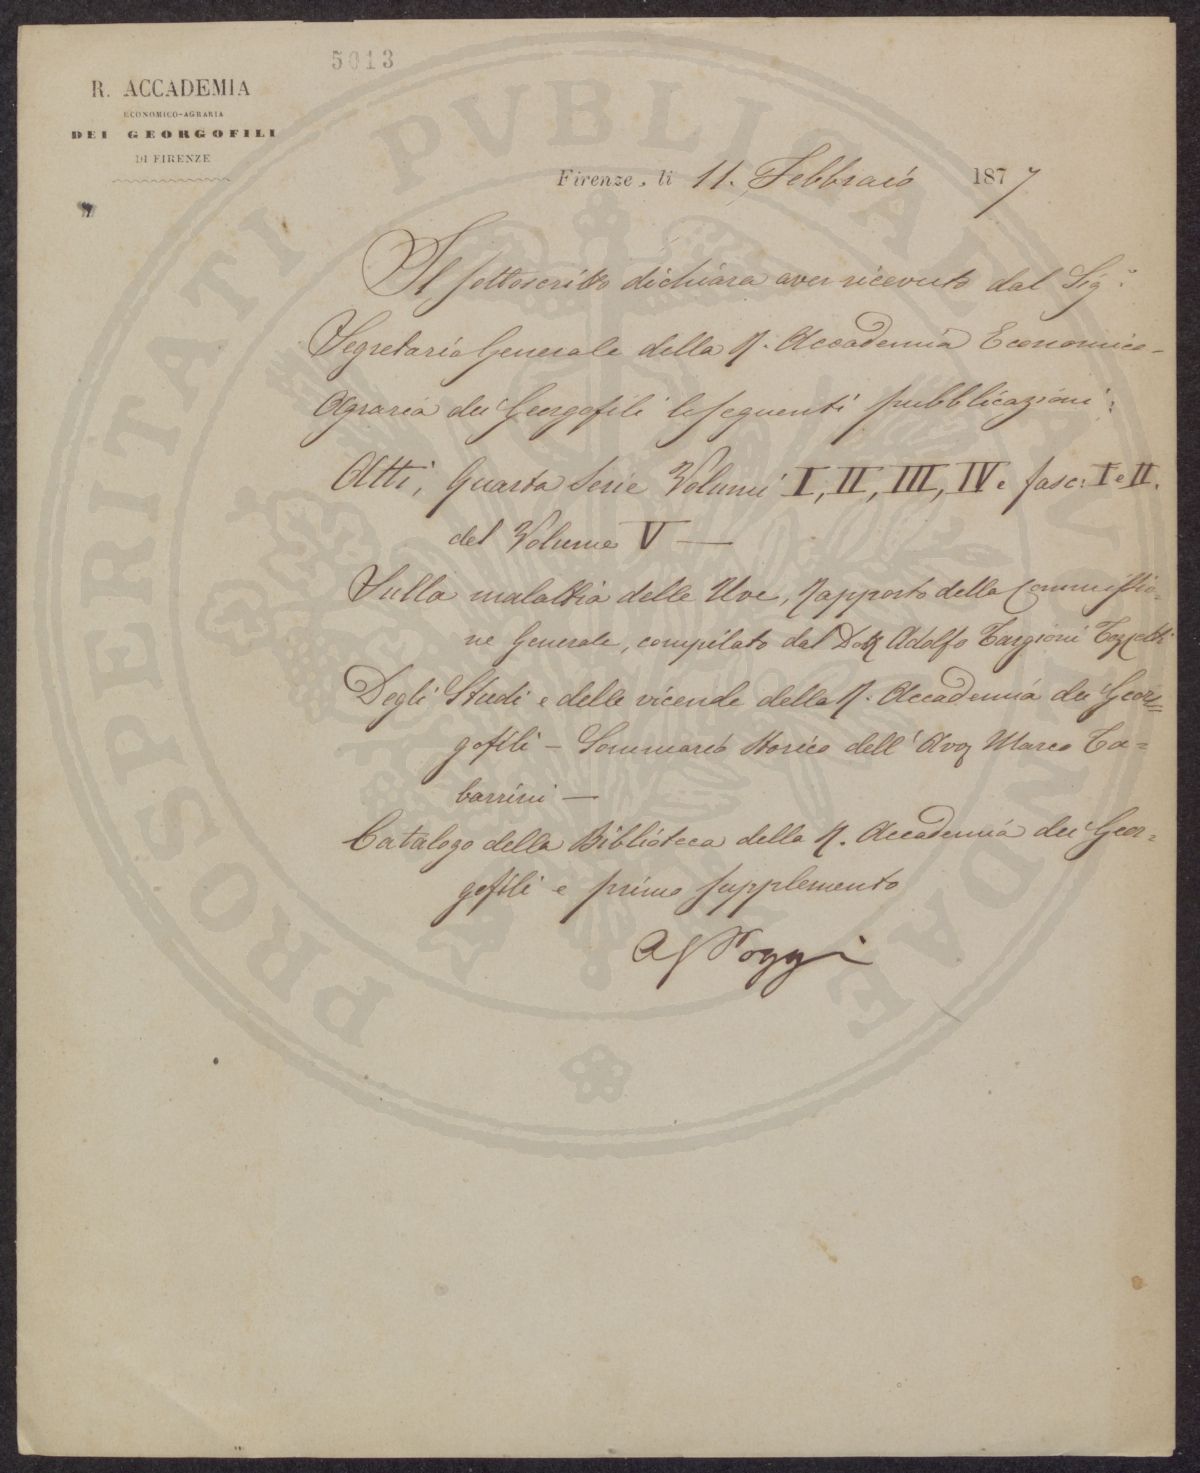 5013
R. ACCADEMIA
ECONOMICO-AGRARIA
DEI GEORGOFILI
DI FIRENZE
Firenze, li 11. Febbraio 1877
Il sottoscritto dichiara aver ricevuto dal Sig.r
Segretario Generale della R. Accademia Economico-
Agraria dei Georgofili le seguenti pubblicazioni:
Atti, Quarta Serie Volumi I, II, III, IV e fasc: I e II.
del Volume V —
Sulla malattia delle Uve, Rapporto della Commissio-
ne Generale, compilato dal Dott Adolfo Targioni Tozzetti
Degli Studi e delle vicende della R. Accademia dei Geor=
gofili — Sommario storico dell'Avv Marco Ta=
barrini —
Catalogo della Biblioteca della R. Accademia dei Geor=
gofili e primo supplemento
Poggi
PROSPERITATI PVBLICAE AVGENDAE